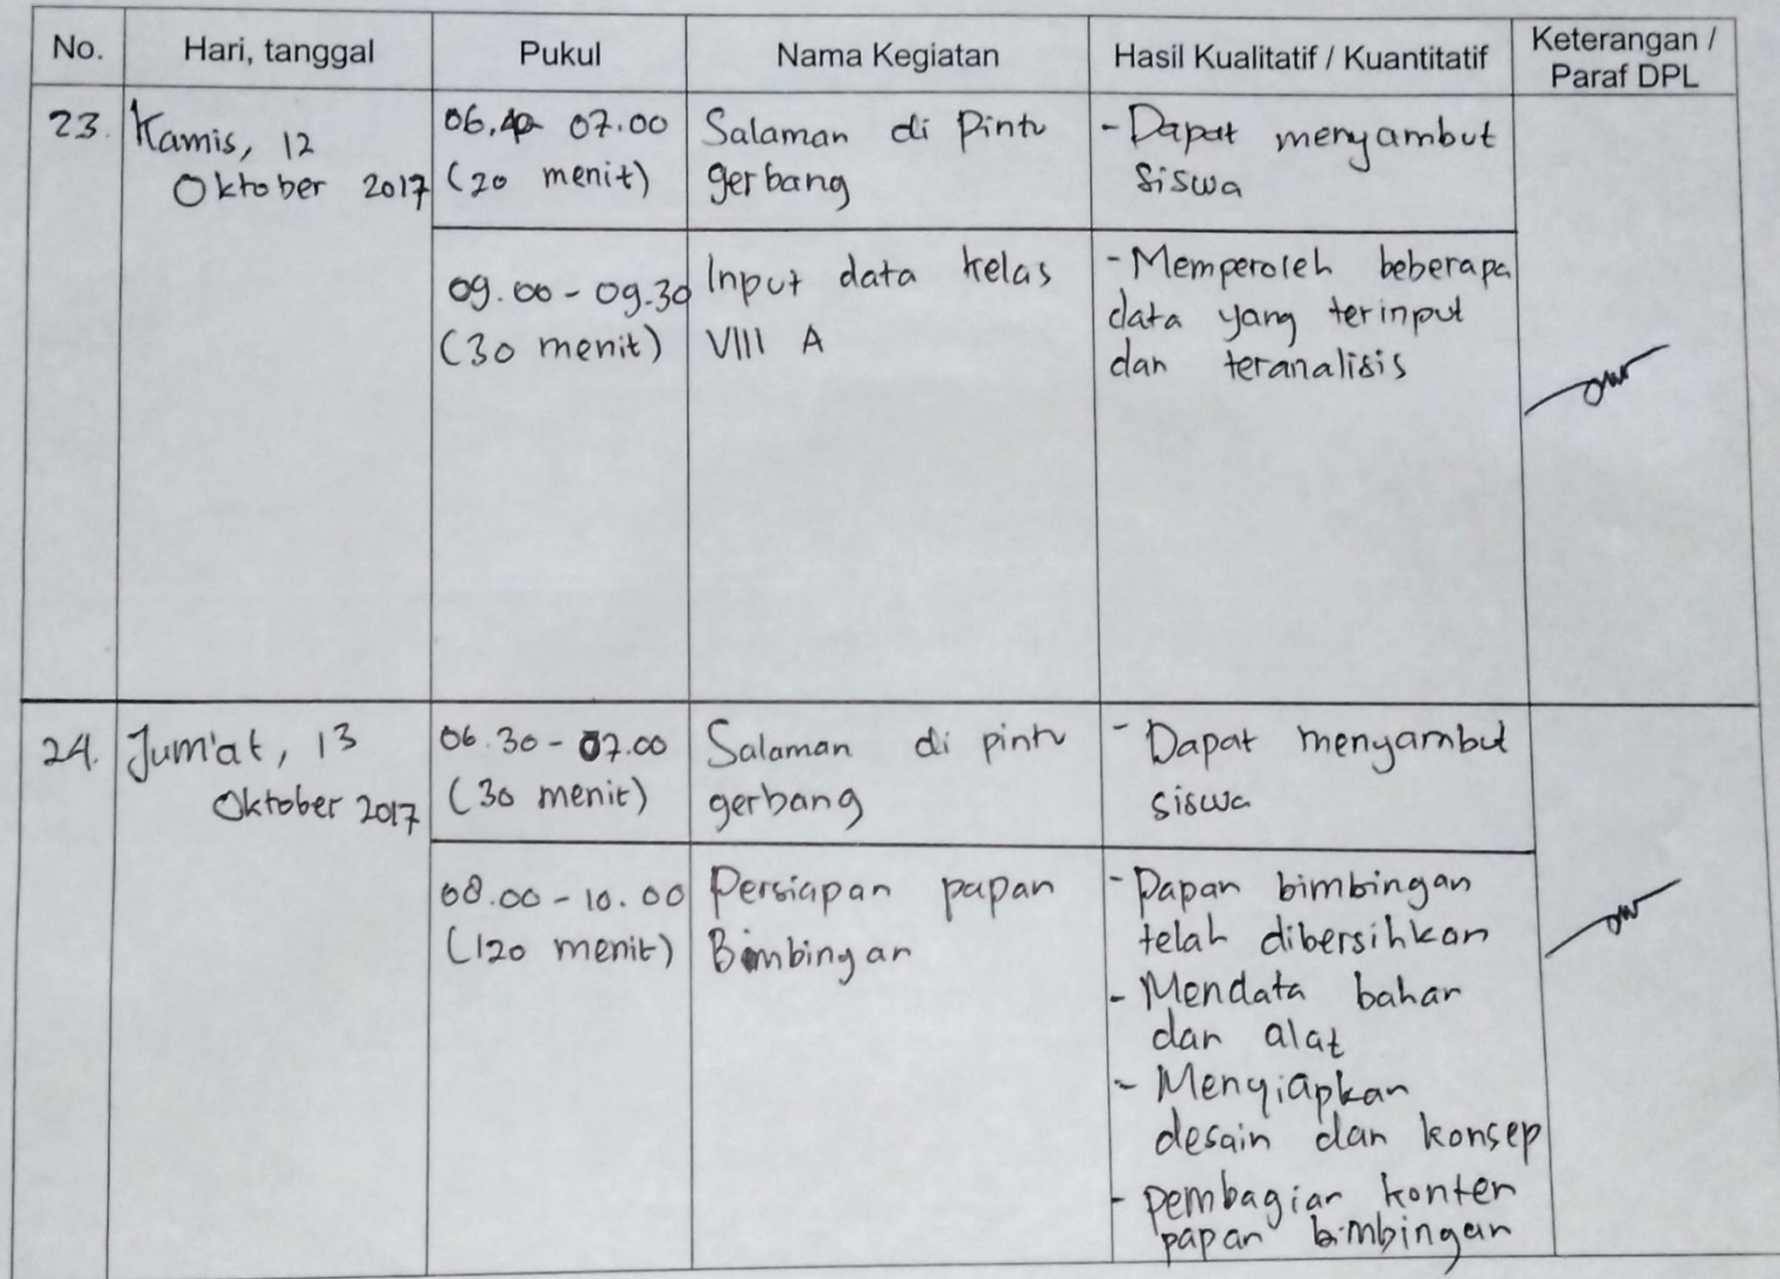 No. Hari, tanggal Pukul Nama Kegiatan Hasil Kualitatif / Kuantitatif Keterangan /
Paraf DPL
23. Kamis, 12
Oktober 2017
06.40 07.00
(20 menit)
Salaman di Pintu
gerbang
- Dapat menyambut
siswa
09.00 - 09.30
(30 menit)
Input data kelas
VIII A
- Memperoleh beberapa
data yang terinput
dan teranalisis
24. Jum'at, 13
Oktober 2017
06.30 - 07.00
(30 menit)
Salaman di pintu
gerbang
- Dapat menyambut
siswa
08.00 - 10.00
(120 menit)
Persiapan papan
Bimbingan
- Papan bimbingan
telah dibersihkan
- Mendata bahan
dan alat
- Menyiapkan
desain dan konsep
- pembagian konten
papan bimbingan